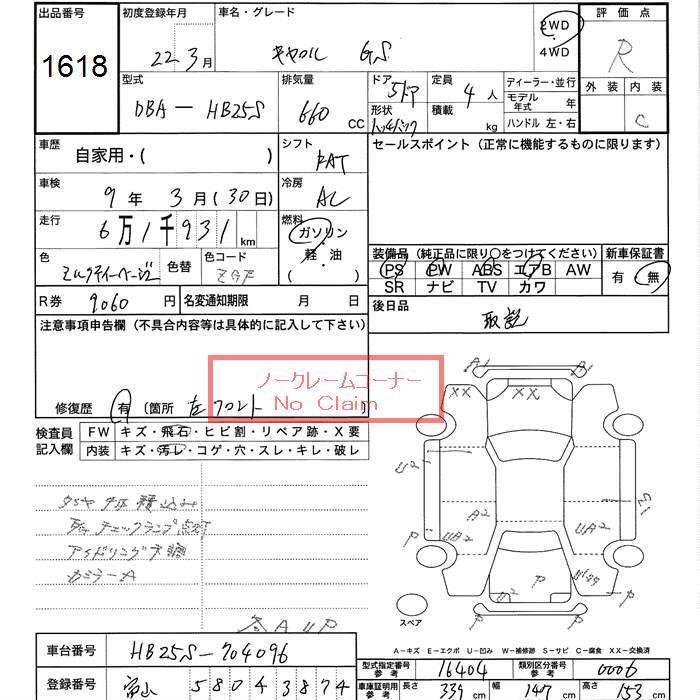 出品番号
1618
初度登録年月
22 3月
車名・グレード
キャロル GS
2WD
4WD
評価点
R
外装 内装
C
型式
DBA-HB25S
排気量
660 CC
ドア
5ドア
形状
定員
4人
積載
kg
ディーラー・並行
モデル年式 年
ハンドル 左・右
車歴
自家用・( )
シフト
FAT
セールスポイント(正常に機能するものに限ります)
車検
9年 3月(30日)
冷房
AC
走行
6万1千931km
燃料
ガソリン
軽・油
( )
色
ミルクティーベージュ
色替
色コード
装備品(純正品に限り○をつけてください)
PS PW ABS エアB AW
SR ナビ TV カワ
新車保証書
有 無
R券
9060円
名変通知期限 月 日
後日品
取説
注意事項申告欄(不具合内容等は具体的に記入して下さい)
ノークレームコーナー
No Claim
修復歴 有(箇所 左フロント )
検査員記入欄
FW キズ・飛石・ヒビ割・リペア跡・X要
内装 キズ・汚レ・コゲ・穴・スレ・キレ・破レ
タイヤ 積込み
チェックランプ点灯
アイドリング不調
A1
A1
XX
XX
U2
A2
UB2
UA2
P
P
P
スペア
A-キズ E-エクボ U-凹み W-補修跡 S-サビ C-腐食 XX-交換済
車台番号
HB25S-704096
登録番号
5804 3874
型式指定番号 参考
16404
類別区分番号 参考
0006
車庫証明用 参考
長さ 339 cm
幅 147 cm
高さ 153 cm